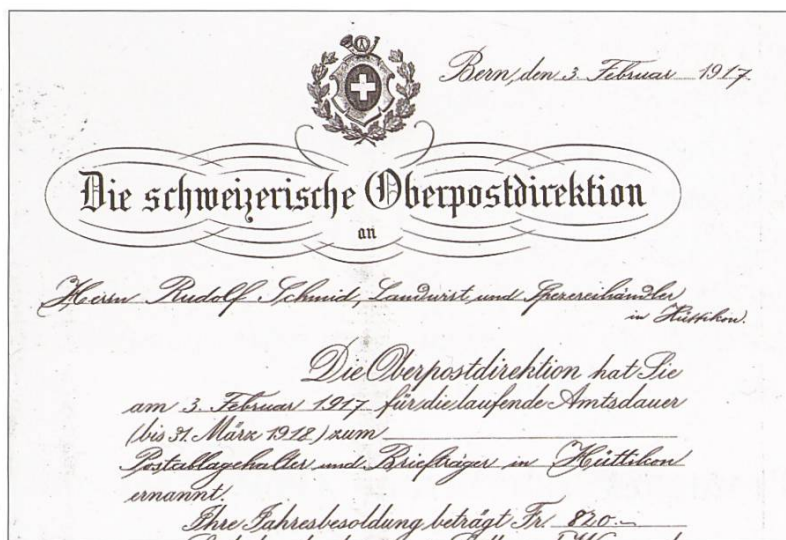 Bern, den 3. Februar 1917.
Die schweizerische Oberpostdirektion
an
Herrn Rudolf Schmid, Landwirt und Spezereihändler
in Hüttikon.
Die Oberpostdirektion hat Sie
am 3. Februar 1917 für die laufende Amtsdauer
(bis 31. März 1918) zum
Postablagehalter und Briefträger in Hüttikon
ernannt.
Ihre Jahresbesoldung beträgt Fr. 820.-